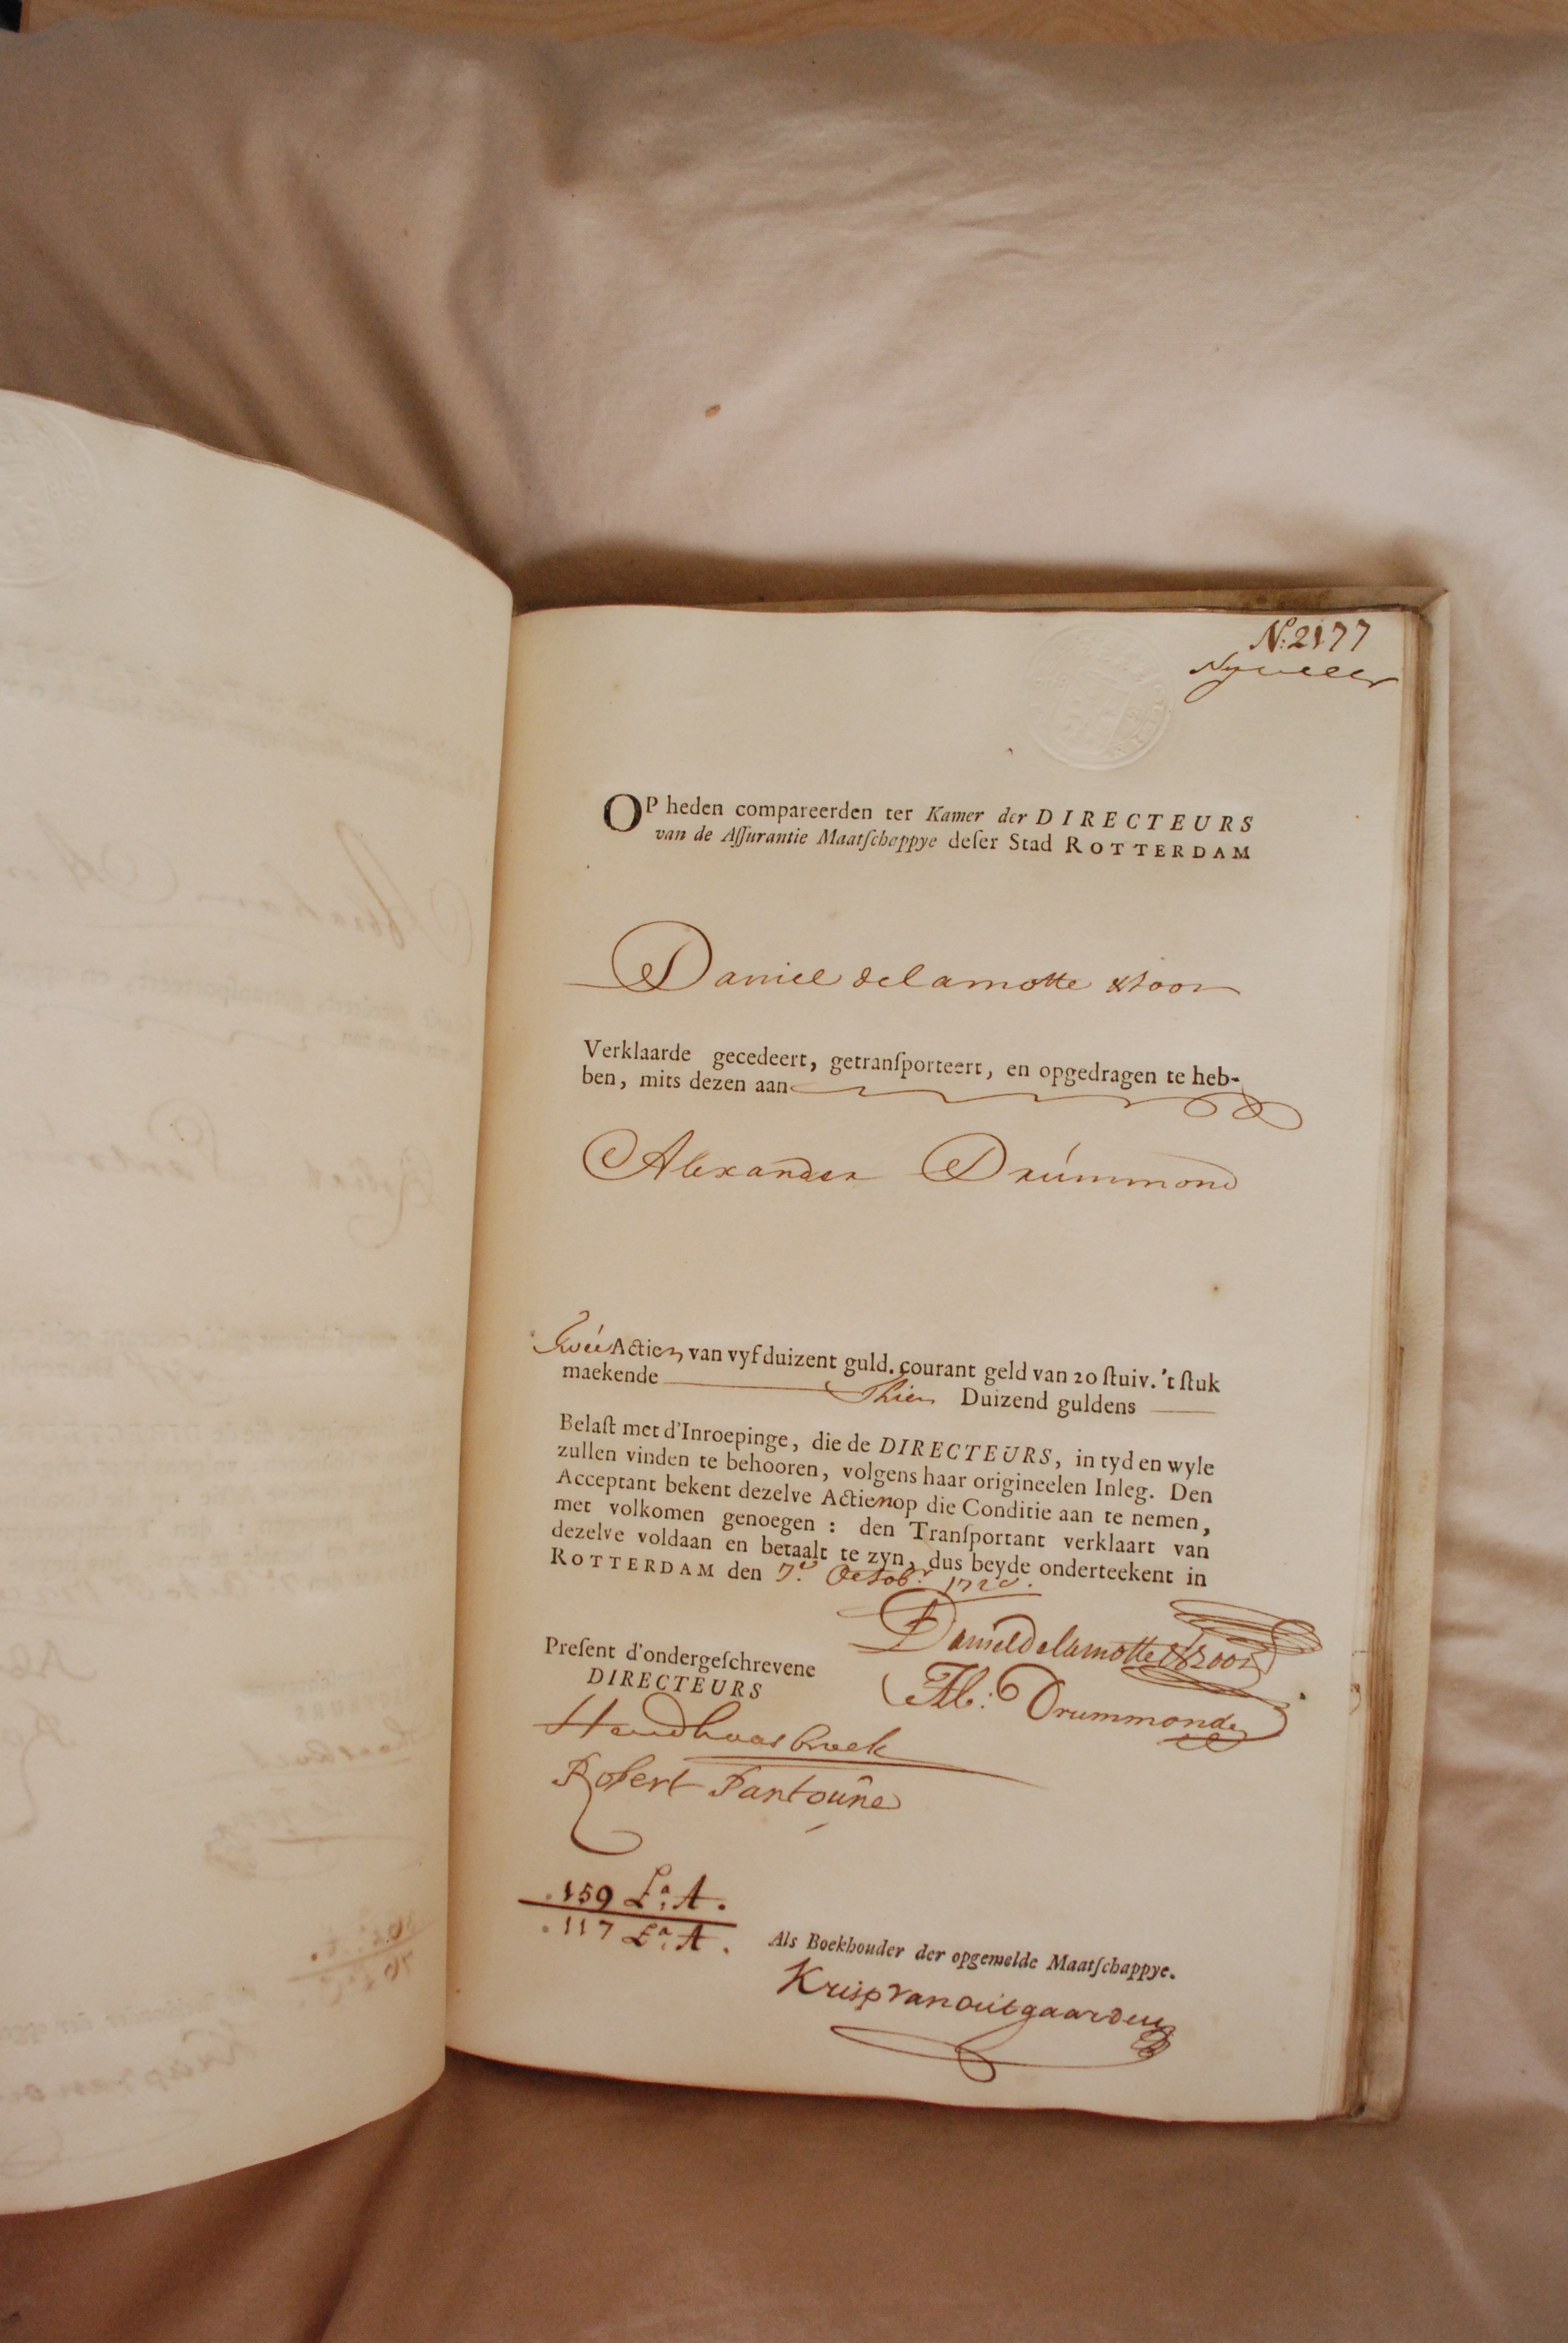 N.º 2177
OP heden compareerden ter Kamer der DIRECTEURS
van de Aſſurantie Maatſchappye deſer Stad ROTTERDAM
Daniel delamotte &Zoon
Verklaarde gecedeert, getranſporteert, en opgedragen te heb-
ben, mits dezen aan
Alexander Drúmmond
Twée Actien van vyf duizent guld. courant geld van 20 ſtuiv. 't ſtuk
maekende Thien Duizend guldens
Belaſt met d'Inroepinge, die de DIRECTEURS, in tyd en wyle
zullen vinden te behooren, volgens haar origineelen Inleg. Den
Acceptant bekent dezelve Actien op die Conditie aan te nemen,
met volkomen genoegen : den Tranſportant verklaart van
dezelve voldaan en betaalt te zyn, dus beyde onderteekent in
ROTTERDAM den 7.e Octob.r 1720.
Daniel Delamotte & Zoon
Preſent d'ondergeſchrevene
DIRECTEURS
Al: Drummond
Robert Fantoüne
.159 L.a A.
.117 L.a A.
Als Boekhouder der opgemelde Maatſchappye.
Krisp van outgaarden